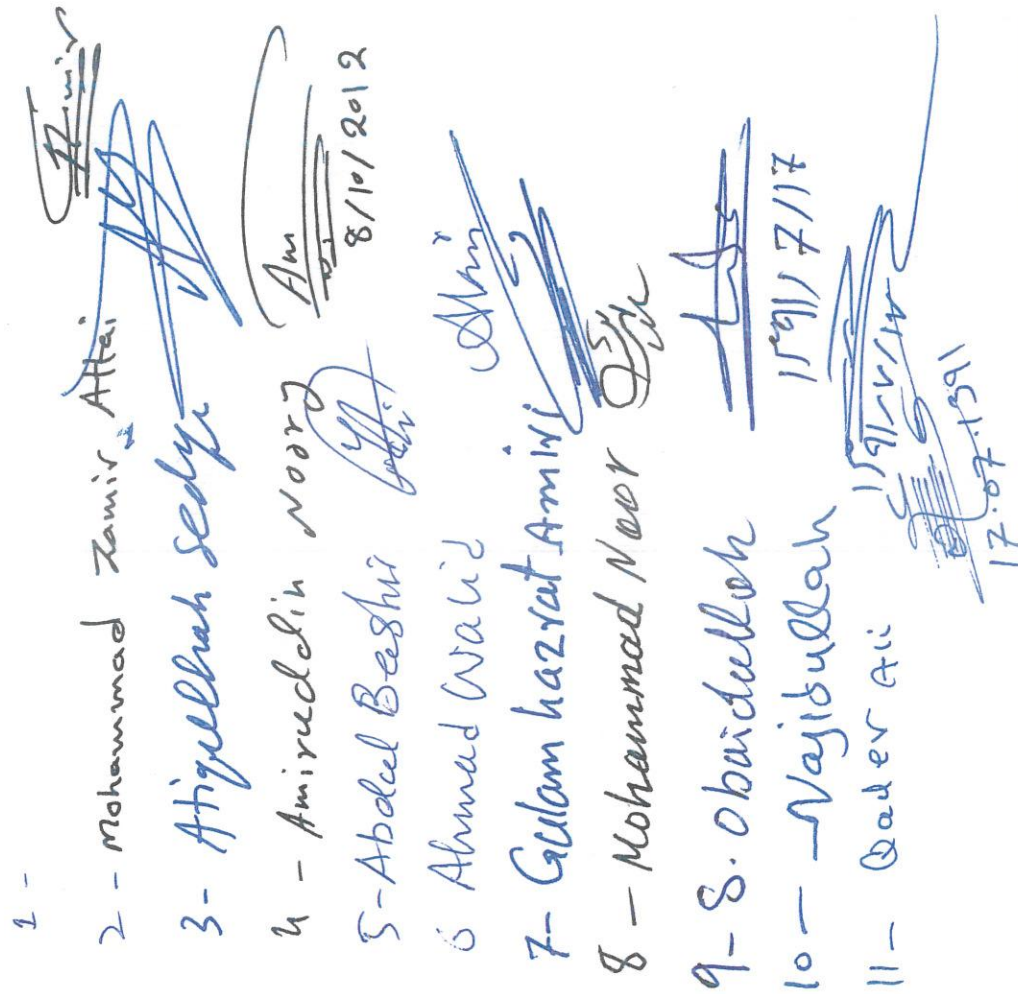 1 -
2 - Mohammad Zamir Attai Zamir
3- Atiqullhah sedyqi
4 - Amiruddin Noory Am
8/10/2012
5-Abdul Bashir
6 Ahmad Walid
7- Gulam hazrat Amiri
8 - Mohammad Noor
9- S. Obaidullah
۱۳۹۱/7/17
10 - Najibullah
۱۳۹۱/۷/۱۷
11 - Qader Ali
17.07.1391